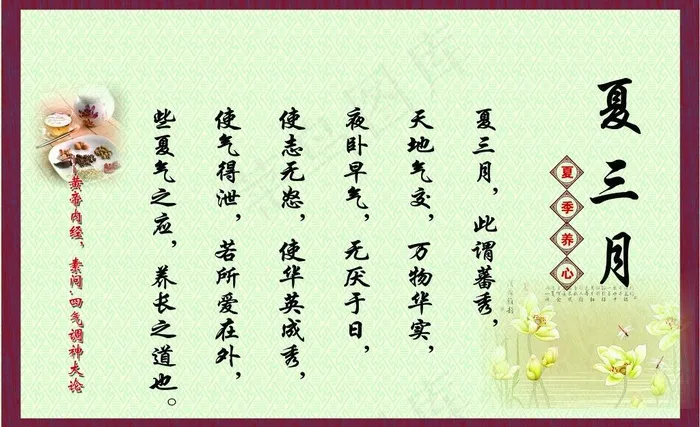 夏三月
夏季养心
夏三月，此谓蕃秀，
天地气交，万物华实，
夜卧早气，无厌于日，
使志无怒，使华英成秀，
使气得泄，若所爱在外，
些夏气之应，养长之道也。
黄帝内经，素问·四气调神大论